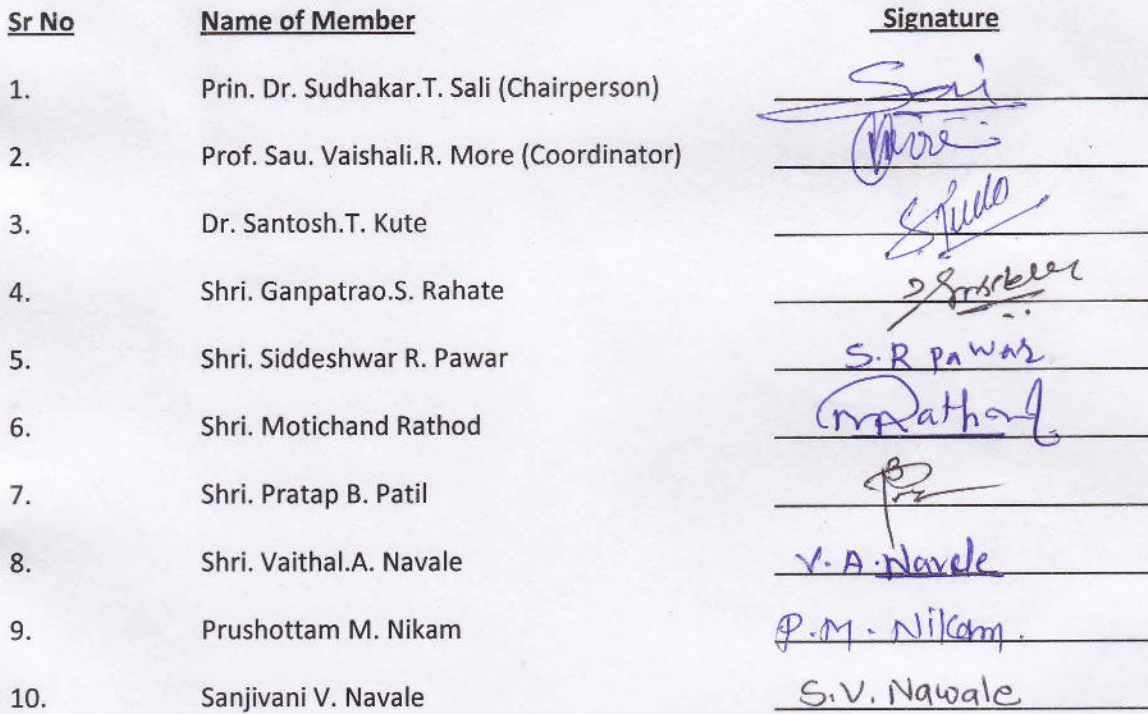 Sr No Name of Member Signature
1. Prin. Dr. Sudhakar.T. Sali (Chairperson) Sali
2. Prof. Sau. Vaishali.R. More (Coordinator) More
3. Dr. Santosh.T. Kute SKute
4. Shri. Ganpatrao.S. Rahate
5. Shri. Siddeshwar R. Pawar S.R pawar
6. Shri. Motichand Rathod MRathod
7. Shri. Pratap B. Patil
8. Shri. Vaithal.A. Navale V.A.Navale
9. Prushottam M. Nikam P.M. Nikam.
10. Sanjivani V. Navale S.V. Nawale